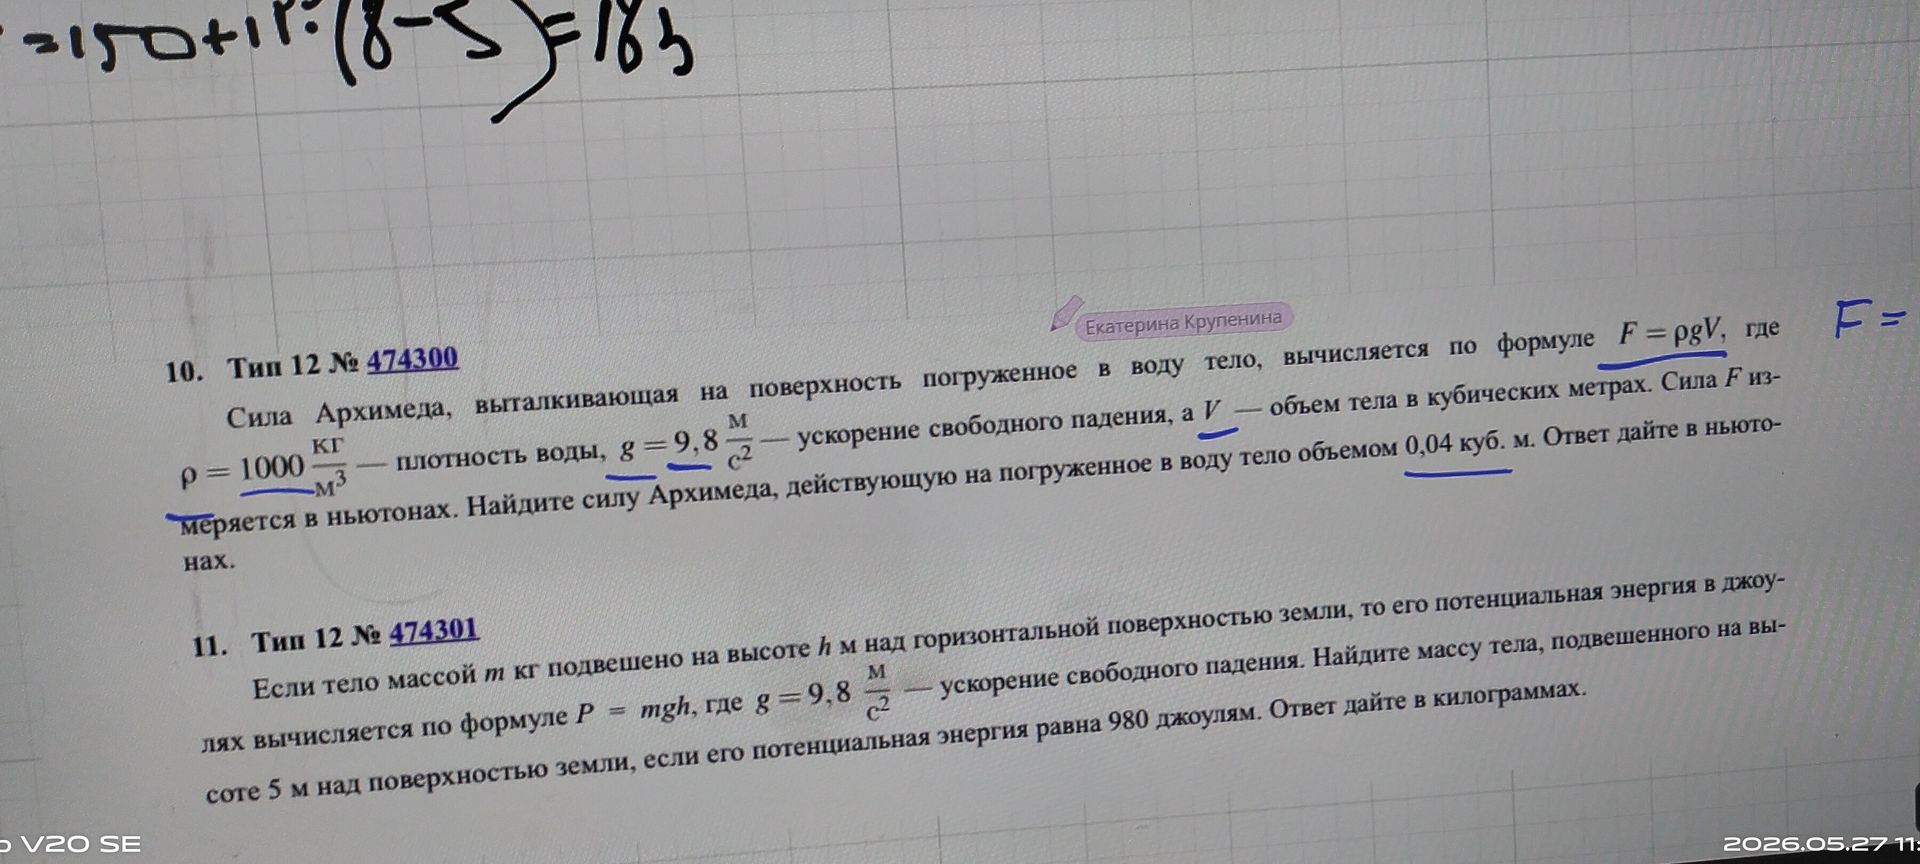 =150+11·(8-5)=183
Екатерина Крупенина
10. Тип 12 № 474300
Сила Архимеда, выталкивающая на поверхность погруженное в воду тело, вычисляется по формуле F = ρgV, где
ρ = 1000 кг/м³ — плотность воды, g = 9,8 м/с² — ускорение свободного падения, а V — объем тела в кубических метрах. Сила F из-
меряется в ньютонах. Найдите силу Архимеда, действующую на погруженное в воду тело объемом 0,04 куб. м. Ответ дайте в ньюто-
нах.
F =
11. Тип 12 № 474301
Если тело массой m кг подвешено на высоте h м над горизонтальной поверхностью земли, то его потенциальная энергия в джоу-
лях вычисляется по формуле P = mgh, где g = 9,8 м/с² — ускорение свободного падения. Найдите массу тела, подвешенного на вы-
соте 5 м над поверхностью земли, если его потенциальная энергия равна 980 джоулям. Ответ дайте в килограммах.
V20 SE
2026.05.27 11: